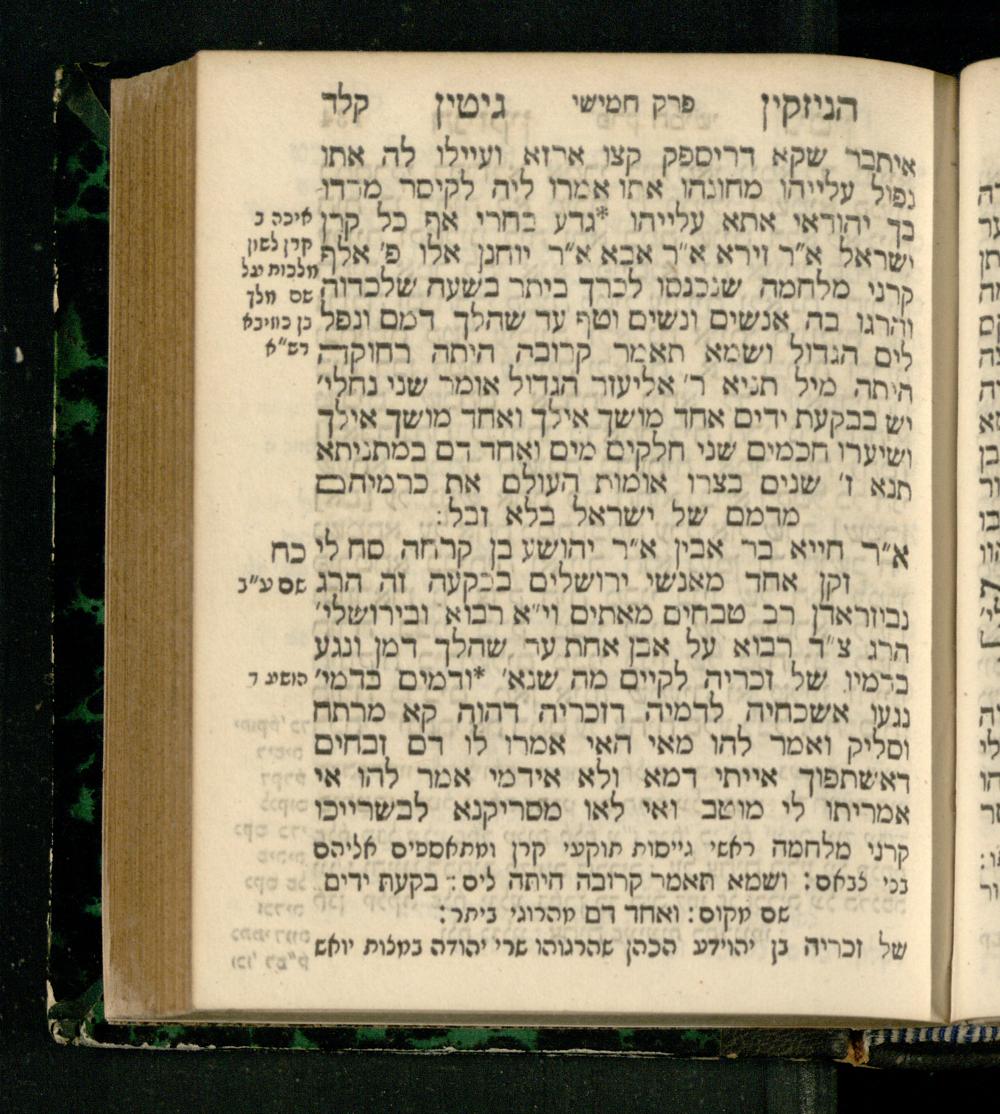 הניזקין פרק חמישי גיטין קלד
איתבר שקא דריספק קצו ארזא ועיילו לה אתו
נפול עלייהו מחונהו אתו אמרו ליה לקיסר מרדו
בך יהודאי אתא עלייהו *גדע בחרי אף כל קרן
ישראל א״ר זירא א״ר אבא א״ר יוחנן אלו פ׳ אלף
קרני מלחמה שנכנסו לכרך ביתר בשעה שלכדוה
והרגו בה אנשים ונשים וטף עד שהלך דמם ונפל
לים הגדול ושמא תאמר קרובה היתה רחוקה
היתה מיל תניא ר׳ אליעזר הגדול אומר שני נחלי׳
יש בבקעת ידים אחד מושך אילך ואחד מושך אילך
ושיערו חכמים שני חלקים מים ואחד דם במתניתא
תנא ז׳ שנים בצרו אומות העולם את כרמיהם
מדמם של ישראל בלא זבל:
א״ר חייא בר אבין א״ר יהושע בן קרחה סח לי
זקן אחד מאנשי ירושלים בבקעה זה הרג
נבוזראדן רב טבחים מאתים וי״א רבוא ובירושלי׳
הרג צ״ד רבוא על אבן אחת עד שהלך דמן ונגע
בדמיו של זכריה לקיים מה שנא׳ *ודמים בדמי׳
נגעו אשכחיה לדמיה דזכריה דהוה קא מרתח
וסליק ואמר להו מאי האי אמרו לו דם זבחים
דאשתפוך אייתי דמא ולא אידמי אמר להו אי
אמריתו לי מוטב ואי לאו מסריקנא לבשרייכו
קרני מלחמה ראשי גייסות תוקעי קרן ומתאספים אליהם
בכי לבאס: ושמא תאמר קרובה היתה ליס: בקעת ידים
שם מקום: ואחד דם מהרוגי ביתר:
של זכריה בן יהוידע הכהן שהרגוהו שרי יהודה במצות יואש
איכה ב
קרן לשון
מלכות ועל
שם מלך
בן כוזיבא
רש״א
כח
שם ע״ב
הושע ד